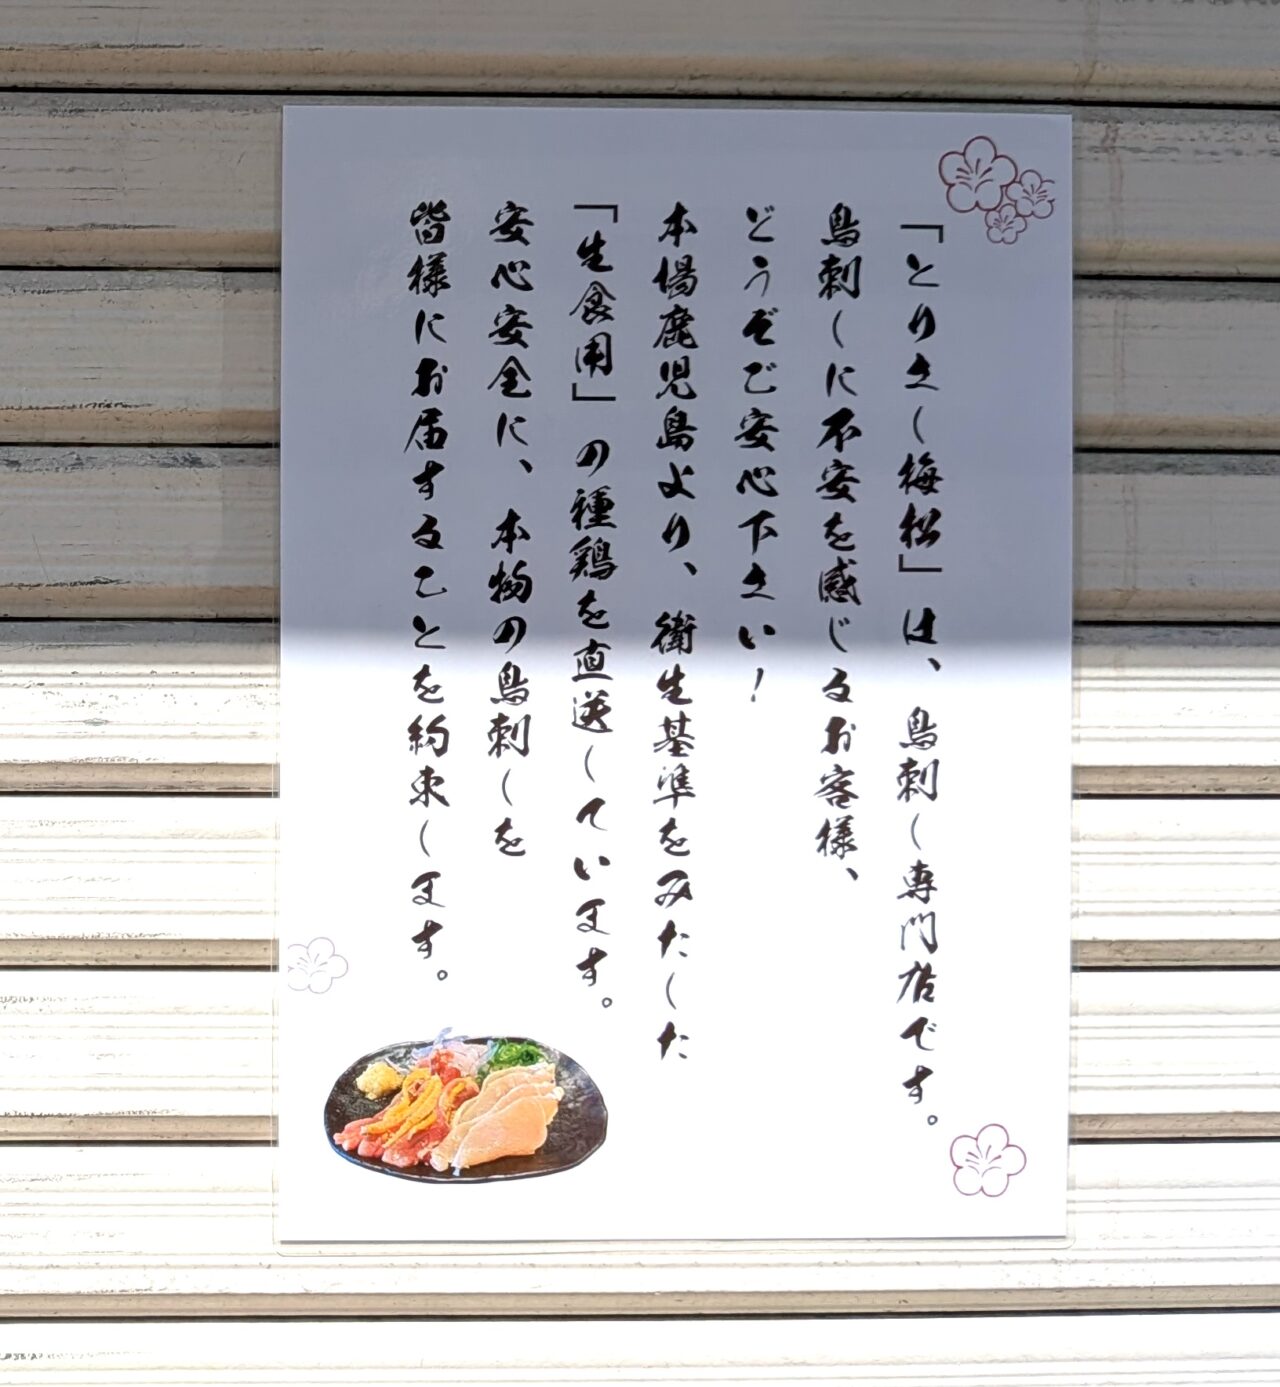 「とりさし梅松」は、鳥刺し専門店です。
鳥刺しに不安を感じるお客様、
どうぞご安心下さい！
本場鹿児島より、衛生基準をみたした
「生食用」の種鶏を直送しています。
安心安全に、本物の鳥刺しを
皆様にお届することを約束します。